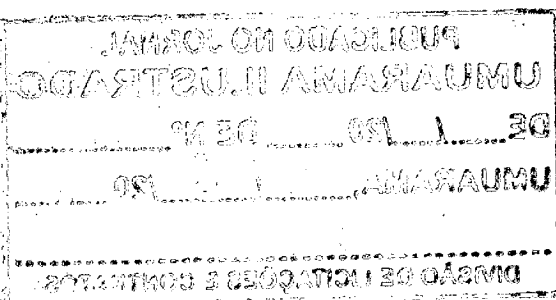 PUBLICADO NO JORNAL
UMUARAMA ILUSTRADO
DE ......./......./20....... DE Nº ..............
UMUARAMA, ......./......./20.......
DIVISÃO DE LICITAÇÕES E CONTRATOS